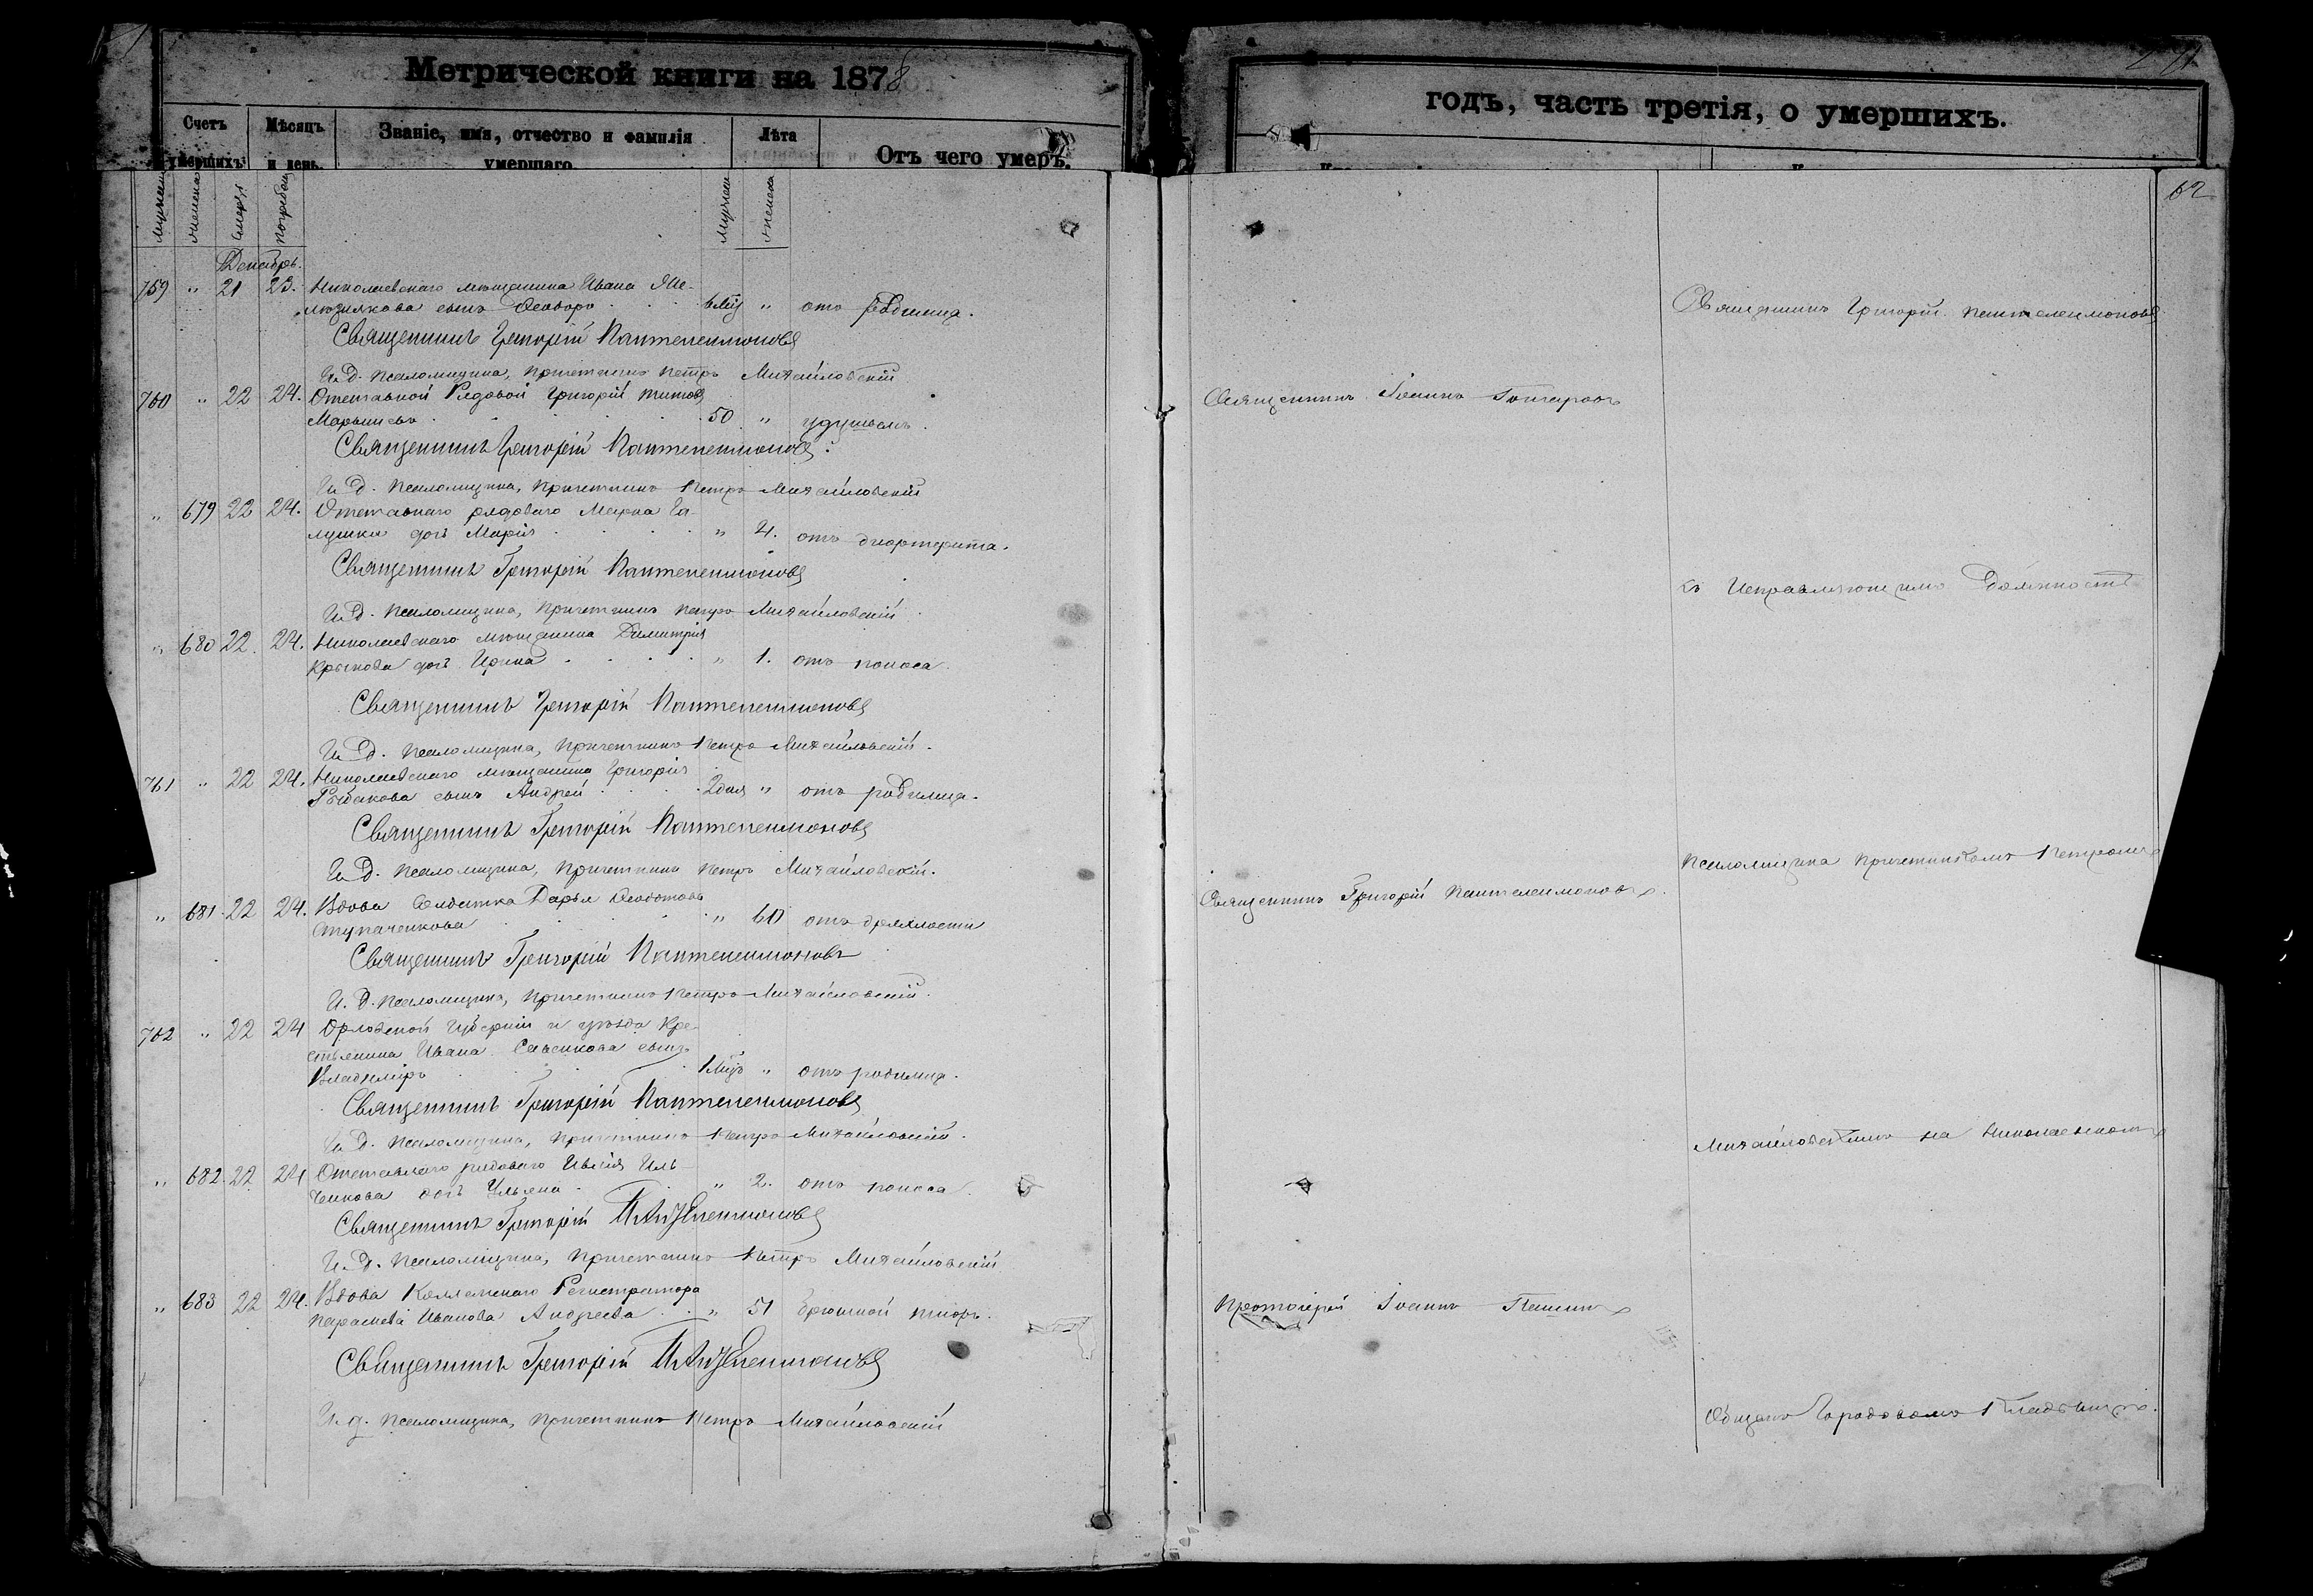 Метрической книги на 1878
годъ, часть третія, о умершихъ.
Счетъ умершихъ.
Мѣсяцъ и день.
Званіе, имя, отчество и фамилія умершаго.
Лѣта
Отъ чего умеръ.
62
Декабрь.
759 " 21 23. Николаевскаго мѣщанина Ивана
сынъ Ѳеодоръ 6 мѣс " отъ родимца.
Священникъ Григорій Пантелеимоновъ
И. Д. Псаломщика, Причетникъ Петръ Михайловскій
760 " 22 24. Отставной Рядовой Григорій Титовъ
50 " удушьемъ.
Священникъ Григорій Пантелеимоновъ.
И. Д. Псаломщика, Причетникъ Петръ Михайловскій
" 679 22 24. Отставнаго рядоваго Марка Га-
лушки дочь Марія " 4. отъ дифтерита.
Священникъ Григорій Пантелеимоновъ
И. Д. Псаломщика, Причетникъ Петръ Михайловскій
" 680 22. 24. Николаевскаго мѣщанина Димитрія
дочь Ирина " 1. отъ поноса.
Священникъ Григорій Пантелеимоновъ
И. Д. Псаломщика, Причетникъ Петръ Михайловскій.
761 " 22 24. Николаевскаго мѣщанина Григорія
Рыбакова сынъ Андрей 2 дня " отъ родимца.
Священникъ Григорій Пантелеимоновъ
И. Д. Псаломщика, Причетникъ Петръ Михайловскій.
" 681. 22 24. Вдова Солдатка Дарья Ѳеодотова
Ступаченкова " 60 отъ дряхлости
Священникъ Григорій Пантелеимоновъ
И. Д. Псаломщика, Причетникъ Петръ Михайловскій.
762 " 22 24 Орловской Губерніи и уѣзда Кре-
стьянина Ивана Савенкова сынъ
Владиміръ 1 мѣс " отъ родимца.
Священникъ Григорій Пантелеимоновъ
И. Д. Псаломщика, Причетникъ Петръ Михайловскій.
" 682. 22 24 Отставнаго рядоваго Иль-
ченкова дочь Ульяна " 2. отъ поноса.
Священникъ Григорій Пантелеимоновъ
И. Д. Псаломщика, Причетникъ Петръ Михайловскій
" 683 22 24. Вдова Коллежскаго Регистратора
Параскева Иванова Андреева " 51 брюшной тифъ.
Священникъ Григорій Пантелеимоновъ
И. д. Псаломщика, Причетникъ Петръ Михайловскій
Священникъ Іоаннъ Гончаровъ
Священникъ Григорій Пантелеимоновъ.
Протоіерей Іоаннъ
Священникъ Григорій Пантелеимоновъ
съ Исправляющимъ Должность
Псаломщика Причетникомъ Петромъ
Михайловскимъ на Николаевскомъ
Общемъ Городовомъ Кладбищѣ.